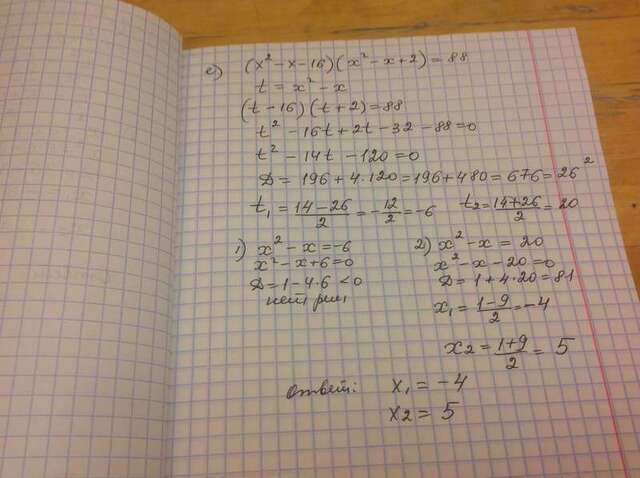 с) (x² - x - 16)(x² - x + 2) = 88
t = x² - x
(t - 16)(t + 2) = 88
t² - 16t + 2t - 32 - 88 = 0
t² - 14t - 120 = 0
D = 196 + 4·120 = 196 + 480 = 676 = 26²
t₁ = (14-26)/2 = -12/2 = -6 t₂ = (14+26)/2 = 20
1) x² - x = -6
x² - x + 6 = 0
D = 1 - 4·6 < 0
нет реш.
2) x² - x = 20
x² - x - 20 = 0
D = 1 + 4·20 = 81
x₁ = (1-9)/2 = -4
x₂ = (1+9)/2 = 5
Ответ: x₁ = -4
x₂ = 5